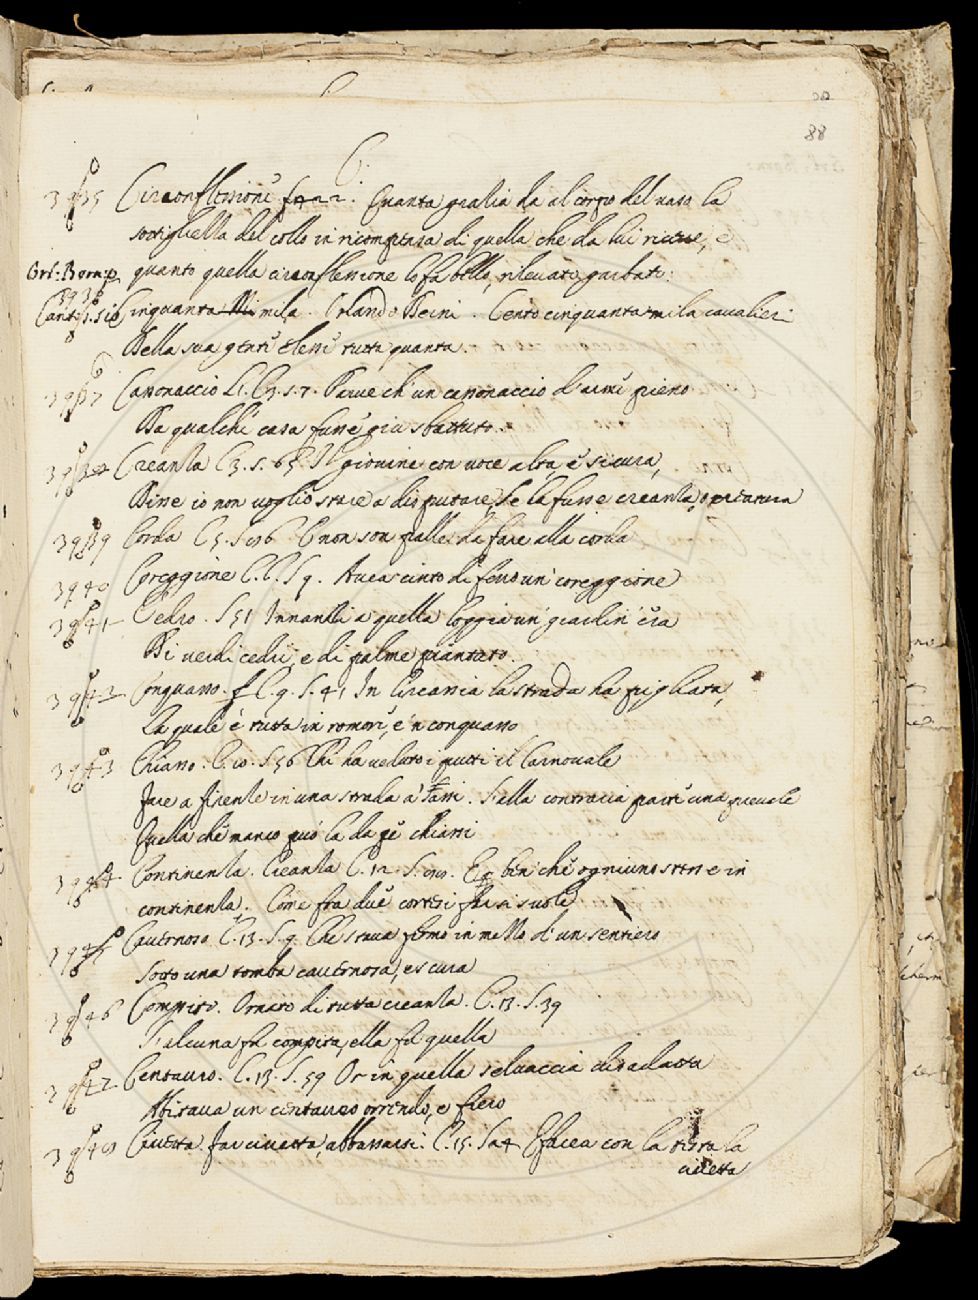 88
C.
3935 Circonflessione. Quanta gratia da al corpo del vaso la
sottigliezza del collo in ricompensa di quella che da lui riceve, e
quanto quella circonflessione lo fa bello, rilevato, garbato.
Orl: Bern:
3936
Cant: 1. S. 10 Cinquanta mila. Orlando Berni. Cento cinquanta mila cavalieri
Della sua gente elesse tutti quanti.
3937 Canonaccio L. 1. C. 3. S. 7. Parve ch'un canonaccio d'armi pieno
Da qualche casa fusse giù sbattuto.
Creanza C. 3. S. 65. Il giovine con voce alta, e sicura,
Disse io non voglio stare a disputare, se la fusse creanza, o
3939 Corda C. 5. S. E non son palle da fare alla corda
3940 Coreggione C. S. 9. Aveas cinto di ferro un coreggione
3941 Cedro. S. 51 Innanzi a quella loggia un giardin' era
Di verdi cedri, e di palme piantato.
3942 Conquasso. C. 9. S. 41 In Circania la strada ha pigliata,
La quale è tutta in romore, e'n conquasso
3943 Chiasso. C. 10. S. 56 Chi ha veduto i putti il Carnovale
Fare a Firenze in una strada a' sassi. S'alla contraria parte una prevale
Quella che manco può la da pe' chiassi
3944 Continenza. Creanza C. 12. S. E ben che ogniuno stesse in
continenza. Come fra due cortesi far si suole
3945 Cavernoso. C. 13. S. 9. Che stava fermo in mezzo d'un sentiero
Sotto una tomba cavernosa, e scura
3946 Compito. Ornato di tutta creanza. C. 13. S. 39
S'alcuna fu compita, ella fu quella
3947 Centauro. C. 13. S. 59 Or in quella selvaccia disadatta
Abitava un centauro orrendo, e fiero
3948 Civetta. Far civetta, abbassarsi. C. 15. S. E facea con la testa la
civetta